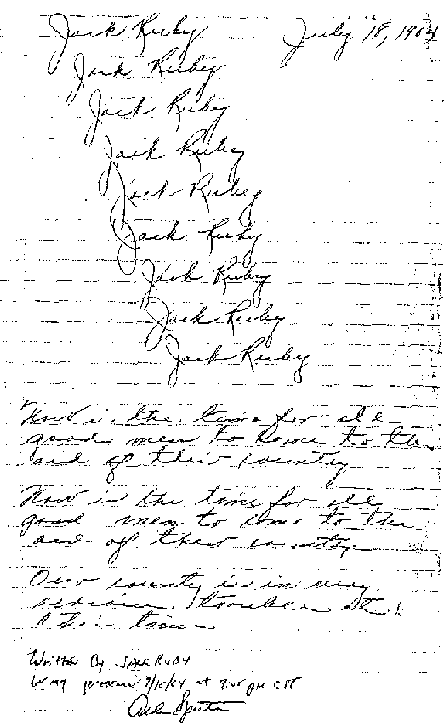 Jack Ruby July 18, 1964
Jack Ruby
Jack Ruby
Jack Ruby
Jack Ruby
Jack Ruby
Jack Ruby
Jack Ruby
Jack Ruby
Now is the time for all
good men to come to the
aid of their country
Now is the time for all
good men to come to the
aid of their country
Our country is in very
serious trouble at
this time
Written By Jack Ruby
In my presence at pm CST